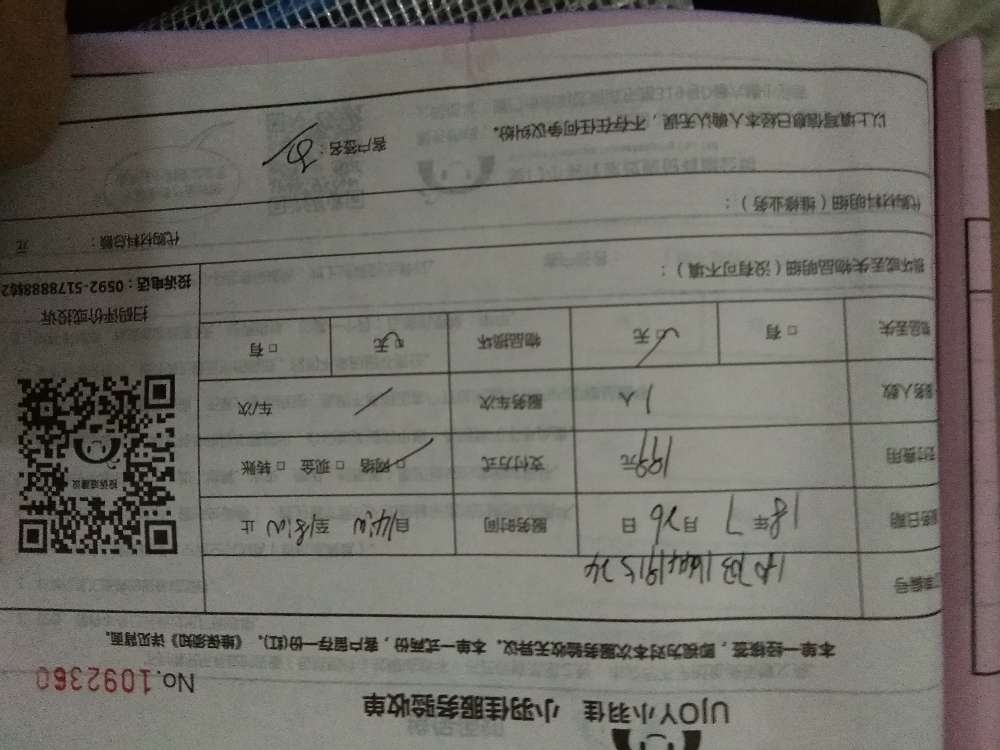 UJOY小羽佳 小羽佳服务验收单
No.1092360
本单一经接签，即视为对本次服务验收无异议。本单一式两份，客户留存一份(红)。《维保须知》详见背面。
单编号
务日期 18年7月26日 服务时间 自14:00至18:00止
付费用 199元 支付方式 □网络 □现金 □转账
务人数 1人 服务车次 车/次
投诉或建议
扫码评价或投诉
投诉电话：0592-5178888转2
物品丢失 □有 □无 物品损坏 □无 □有
损坏或丢失物品明细（没有可不填）：
代购材料明细（维修业务）：
代购材料总额： 元
以上填写信息已经本人确认无误，不存在任何争议纠纷。
客户签名：